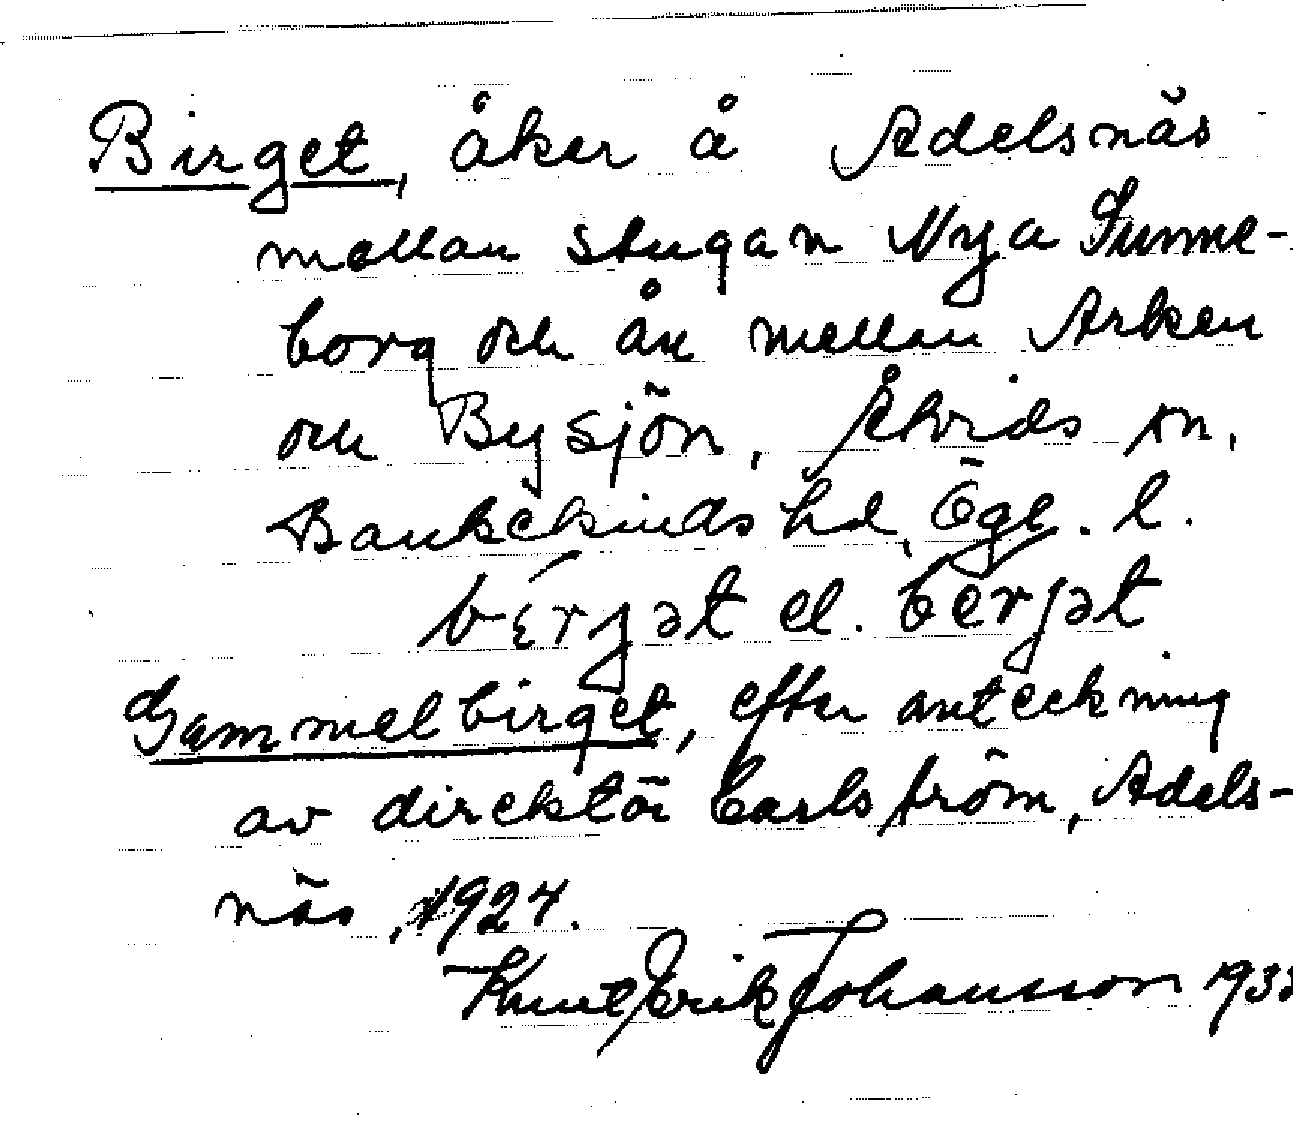 Birget, åker å Adelsnäs
mellan stugan Nya Sunne-
borg och ån mellan Arken
och Bysjön, Åtvids sn,
Bankekinds hd, Ögl. l.
bɛ́rgət el. bergət
Gammelbirget, efter anteckning
av direktör Carlström, Adels-
näs, 1924.
Knut Erik Johansson